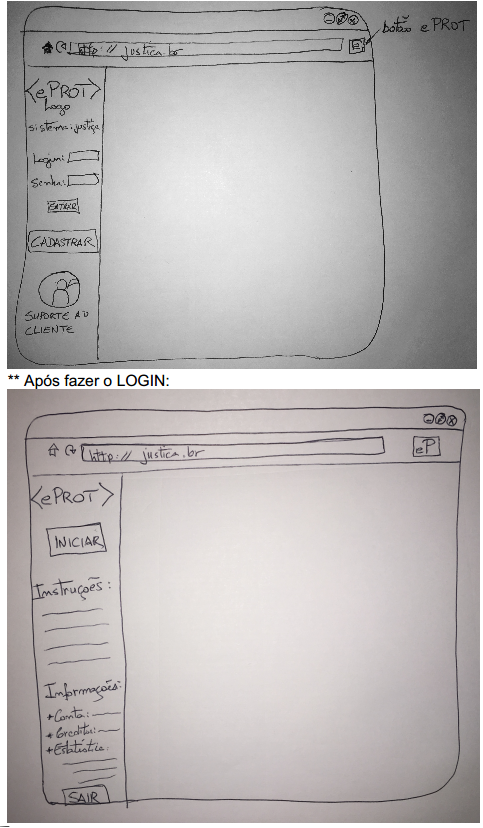 botão ePROT
http:// justica.br
e
<ePROT>
Logo
sistema: justiça
Login:
Senha:
ENTRAR
CADASTRAR
SUPORTE AO
CLIENTE
** Após fazer o LOGIN:
http:// justica.br
eP
<ePROT>
INICIAR
Instruções:
Informações:
+Conta:
+Creditos:
+Estatística:
SAIR